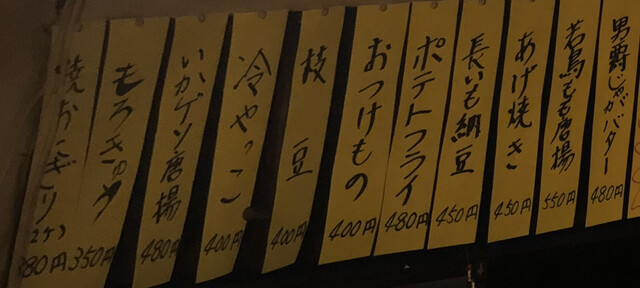 男爵じゃがバター
480円
若鳥もも唐揚
550円
あげ焼き
450円
長いも納豆
450円
ポテトフライ
480円
おつけもの
400円
枝豆
400円
冷やっこ
400円
いかゲソ唐揚
480円
もろきゅう
350円
焼おにぎり
(2ケ)